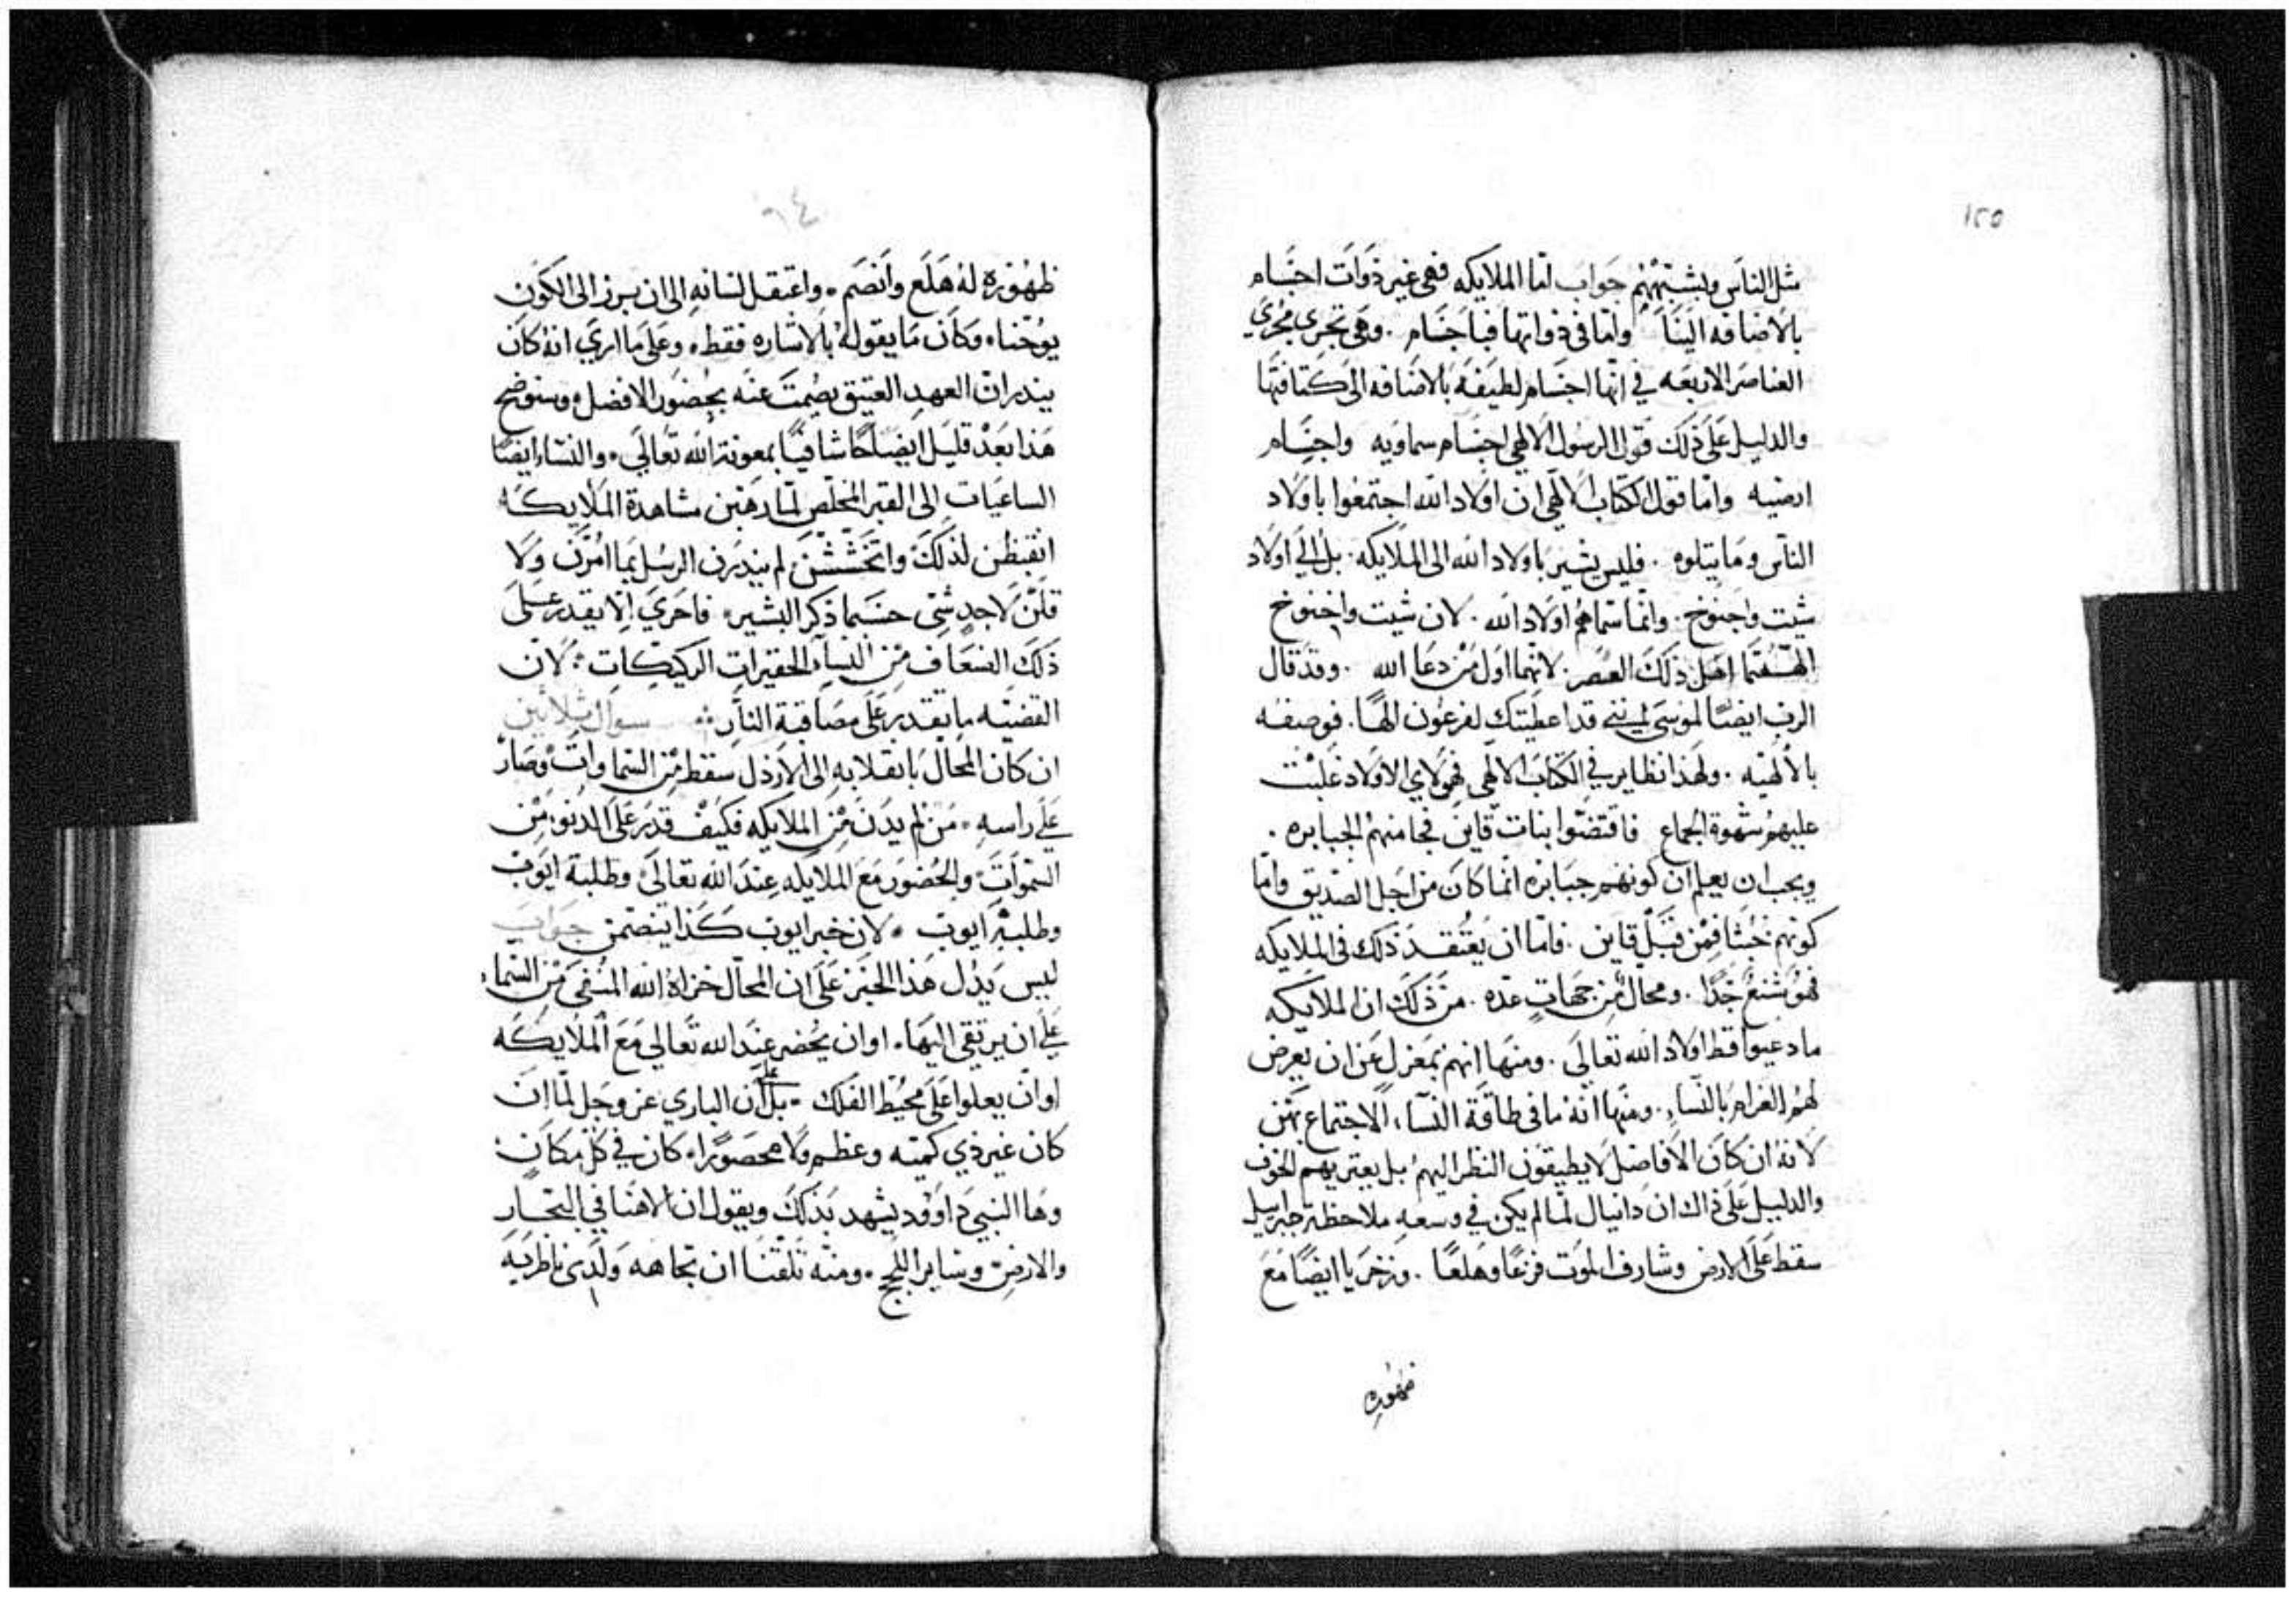 ١٢٥
مثل الناس ويشبههم جواب اما الملايكه فهى غير ذوات اجسام
بالاضافه الينا واما فى ذواتها فباجسام . وهى تجرى مجرى
العناصر الاربعه في انها اجسام لطيفه بالاضافه الى كثافتها
والدليل على ذلك قول الرسول الالهي اجسام سماويه واجسام
ارضيه واما قول الكتاب الالهي ان اولاد الله اجتمعوا باولاد
الناس وما يتلوه . فليس يشير باولاد الله الى الملايكه . بل الي اولاد
شيت واخنوخ . وانما سماهم اولاد الله . لان شيت واخنوخ
اهل ذلك العصر . لانهما اول من دعا الله . وقد قال
الرب ايضا لموسى انني قد اعطيتك لفرعون الها . فوصفه
بالالهيه . ولهذا نظاير في الكتاب الالهي فهولاي الاولاد غلبت
عليهم شهوة الجماع فاقتضوا بنات قاين فجا منهم الجبابره .
ويجب ان يعلم ان كونهم جبابره انما كان من اجل الصديق واما
كونهم خبثا فمن قبل قاين . فاما ان يعتقد ذلك فى الملايكه
فهو شنع جدا . ومحال من جهات عده . من ذلك ان الملايكه
ما دعيوا قط اولاد الله تعالى . ومنها انهم بمعزل عن ان يعرض
لهم الغرام بالنساء . ومنها انه ما فى طاقة النساء الاجتماع بهن
لانه ان كان الافاضل لا يطيقون النظر اليهم بل يعتريهم الخوف
والدليل على ذاك ان دانيال لما لم يكن في وسعه ملاحظة جبراييل
سقط على الارض وشارف الموت فزعا وهلعا . وزخريا ايضا مع
ظهوره
٦٤
ظهوره له هلع وانصم . واعتقل لسانه الى ان برز الى الكون
يوحنا . وكان ما يقوله بالاشاره فقط . وعلى ما اري انه كان
ينذر ان العهد العتيق يصمت عنه بحضور الافضل وسنوضح
هذا بعد قليل ايضاحا شافيا بمعونة الله تعالي . والنساء ايضا
الساعيات الى القبر المخلص لما رهبن مشاهدة الملايكه
انقبظن لذلك واتخششن لم ينذرن الرسل بما امرن ولا
قلن لاحد شى حسبما ذكر البشير . فاحري الا يقدر على
ذلك الضعاف من النساء الحقيرات الركيكات : لان
القضيه ما يقدر على مصاقبة النار : سوال ثلاثين
ان كان المحال بانقلابه الى الارذل سقط من السماوات وصار
على راسه . من لم يدن من الملايكه فكيف قدر على الدنو من
السموات والحضور مع الملايكه عند الله تعالى وطلبة ايوب
وطلبة ايوب . لان خبر ايوب كذا يتضمن جواب
ليس يدل هذا الخبر على ان المحال خزاه الله المنفى من السماء
على ان يرتقي اليها . او ان يحضر عند الله تعالي مع الملايكه
او ان يعلوا على محيط الفلك . بل على ان الباري عز وجل لما ان
كان غير ذي كميه وعظم ولا محصورا . كان في كل مكان
وها النبي داوود يشهد بذلك ويقول ان الاهنا في البحار
والارض وساير اللجج . ومنه تلقنا ان تجاهه ولدى ناظريه